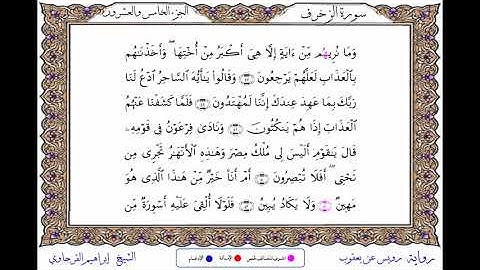 سورة الزخرف
الجزء الخامس والعشرون
وَمَا نُرِيهُم مِّنْ ءَايَةٍ إِلَّا هِىَ أَكْبَرُ مِنْ أُخْتِهَا وَأَخَذْنَٰهُم
بِالْعَذَابِ لَعَلَّهُمْ يَرْجِعُونَ وَقَالُوا۟ يَٰٓأَيُّهَ السَّاحِرُ ادْعُ لَنَا
رَبَّكَ بِمَا عَهِدَ عِندَكَ إِنَّنَا لَمُهْتَدُونَ فَلَمَّا كَشَفْنَا عَنْهُمُ
الْعَذَابَ إِذَا هُمْ يَنكُثُونَ وَنَادَىٰ فِرْعَوْنُ فِى قَوْمِهِۦ
قَالَ يَٰقَوْمِ أَلَيْسَ لِى مُلْكُ مِصْرَ وَهَٰذِهِ الْأَنْهَٰرُ تَجْرِى مِن
تَحْتِى أَفَلَا تُبْصِرُونَ أَمْ أَنَا۠ خَيْرٌ مِّنْ هَٰذَا الَّذِى هُوَ
مَهِينٌ وَلَا يَكَادُ يُبِينُ فَلَوْلَا أُلْقِىَ عَلَيْهِ أَسْوِرَةٌ مِّن
رواية رويس عن يعقوب
الشيخ إبراهيم الفرجاوي